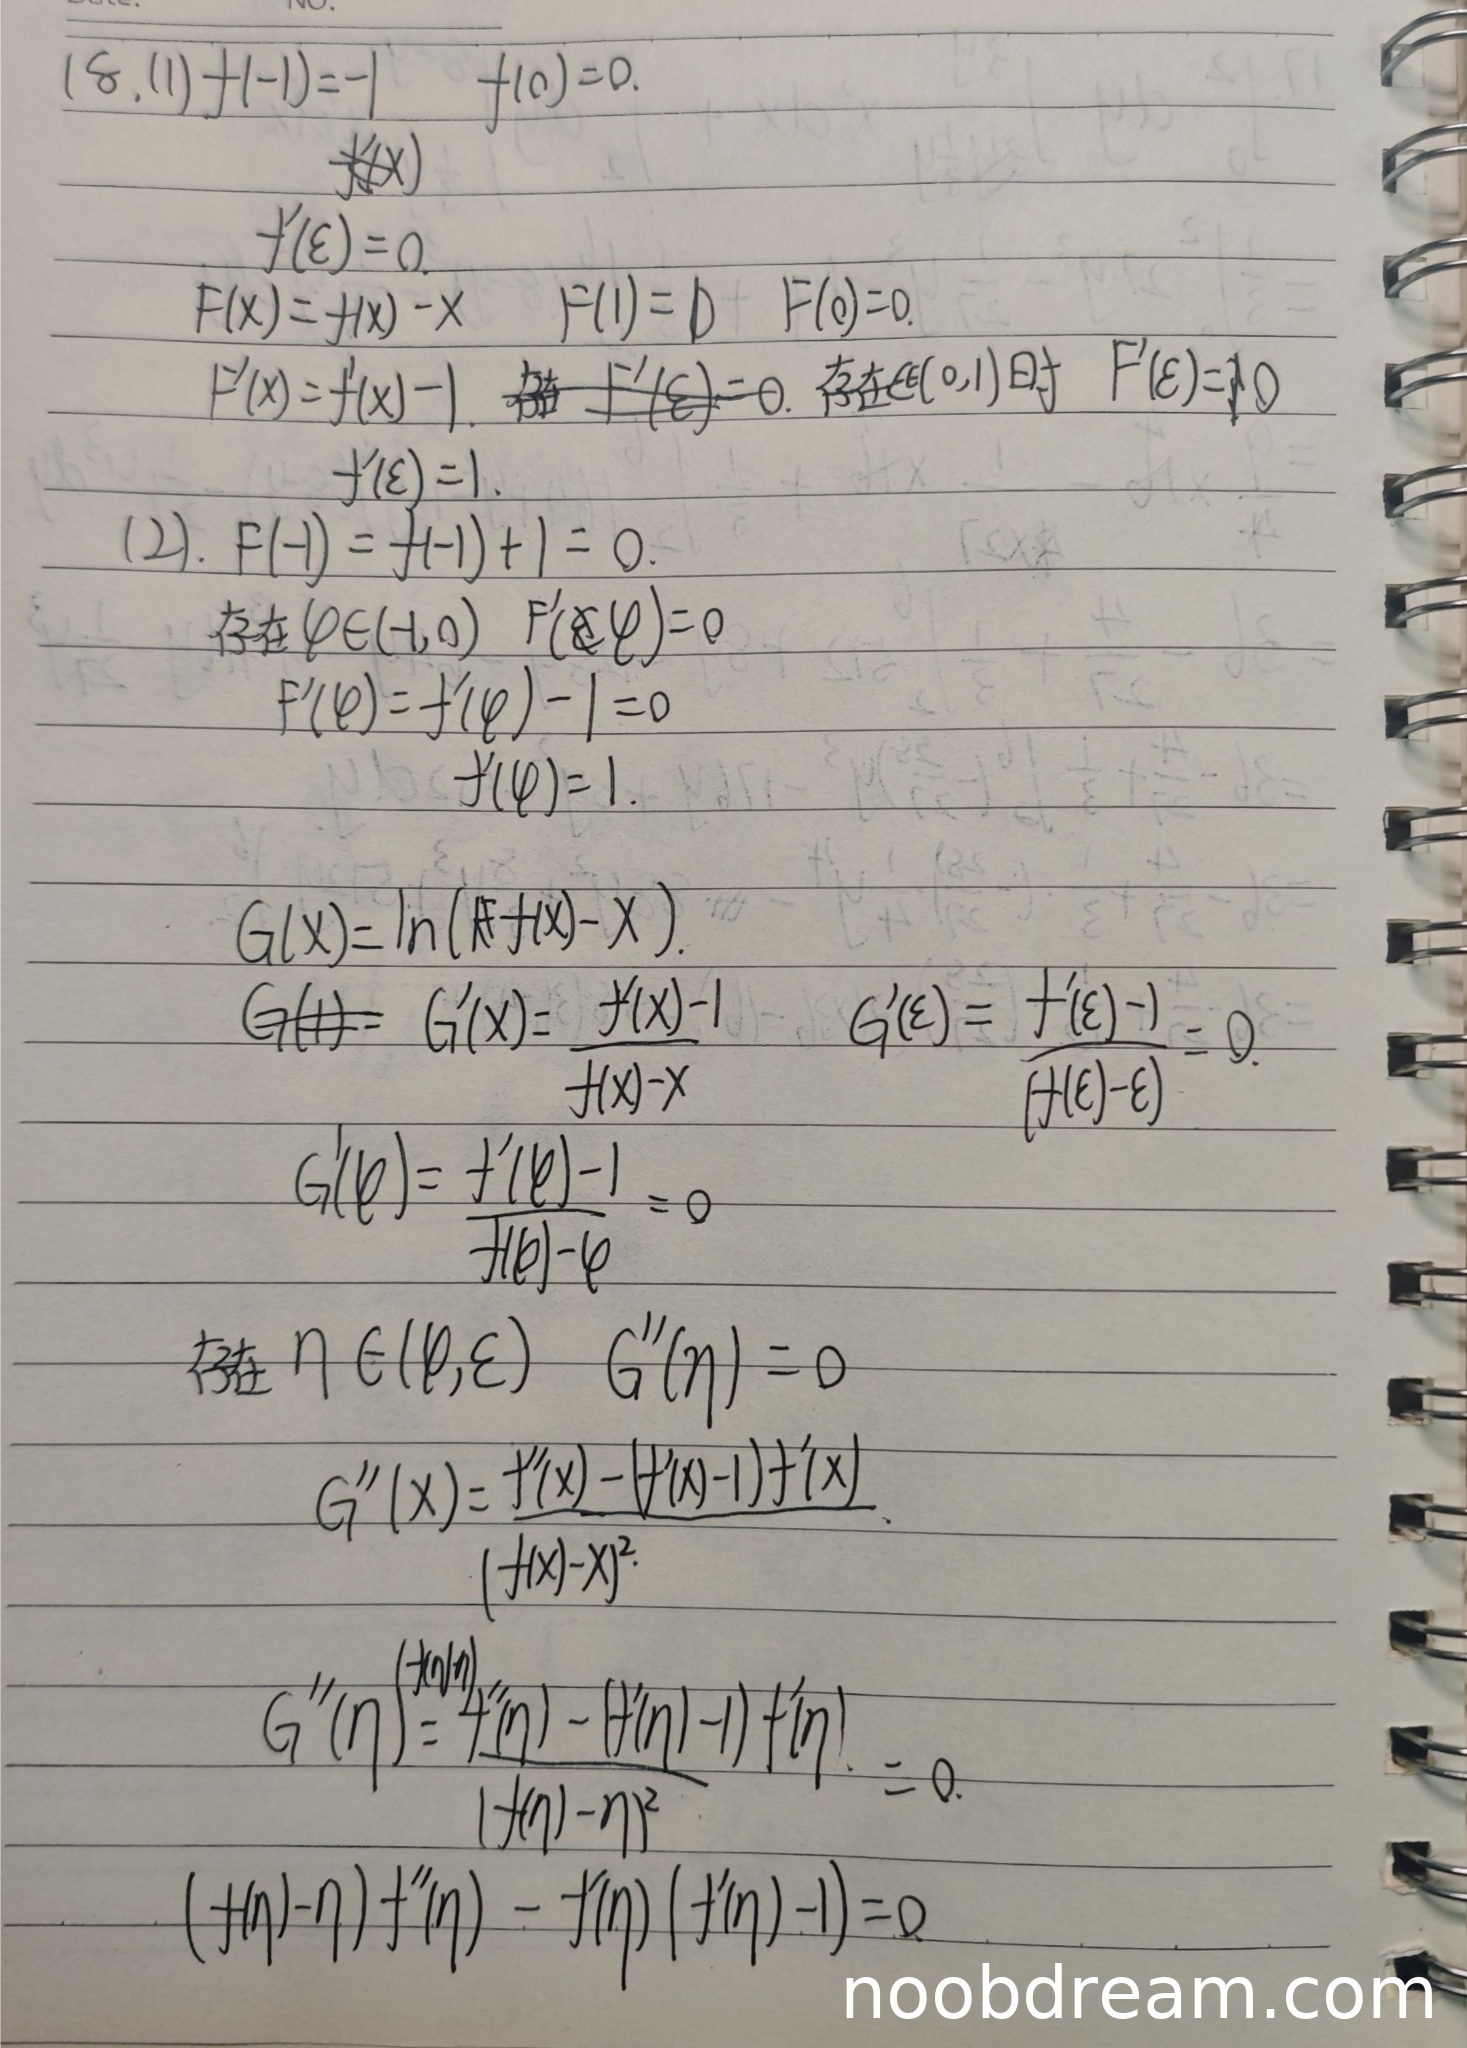 Date. NO.
18.(1) f(-1)=-1 f(0)=0.
f'(x)
f'(ε)=0.
F(x)=f(x)-x F(1)=0 F(0)=0.
F'(x)=f'(x)-1. 存在 F'(ε)=0. 存在ε∈(0,1)时 F'(ε)=0
f'(ε)=1.
(2). F(-1)=f(-1)+1=0.
存在φ∈(-1,0) F'(φ)=0
F'(φ)=f'(φ)-1=0
f'(φ)=1.
G(x)=ln(f(x)-x).
G(1)= G'(x)=\frac{f'(x)-1}{f(x)-x} G'(ε)=\frac{f'(ε)-1}{(f(ε)-ε)}=0.
G'(φ)=\frac{f'(φ)-1}{f(φ)-φ}=0
存在 η∈(φ,ε) G''(η)=0
G''(x)=\frac{f''(x)-(f'(x)-1)f'(x)}{(f(x)-x)^2}.
G''(η)=\frac{(f(η)-η)f''(η)-(f'(η)-1)f'(η)}{(f(η)-η)^2}=0.
(f(η)-η)f''(η)-f'(η)(f'(η)-1)=0
noobdream.com